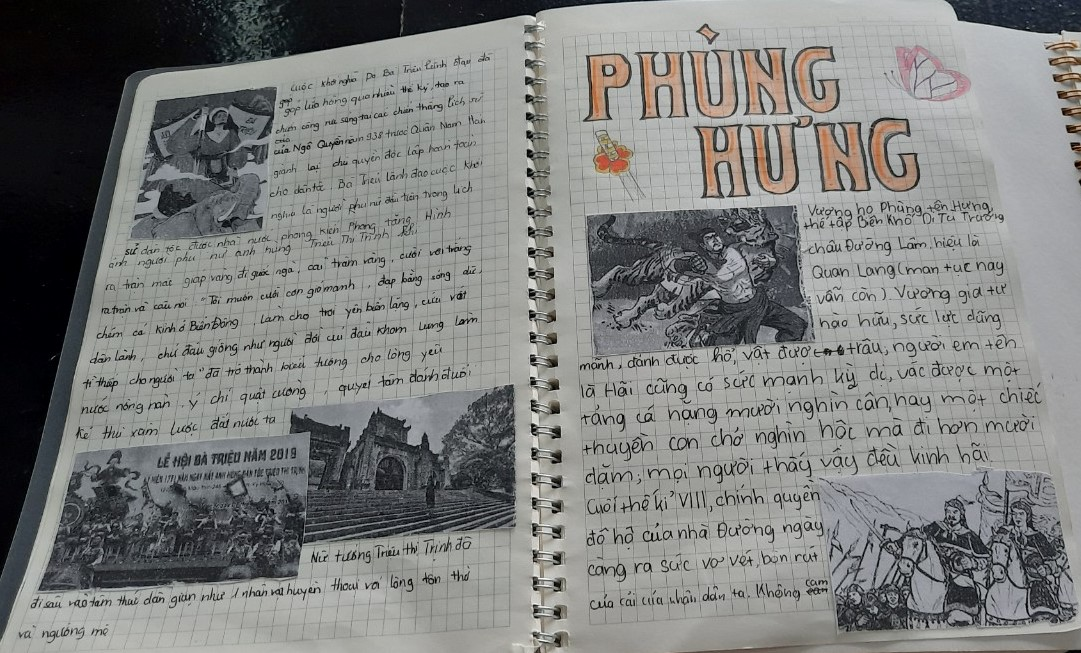 Cuộc khởi nghĩa Do Bà Triệu lãnh đạo đã
góp
góp lửa hồng qua nhiều thế kỷ, tạo ra
chiến công nối sáng tai các chiến thắng lịch sử
của
của Ngô Quyền năm 938 trước Quân Nam Hán
giành lại chủ quyền độc lập hoàn toàn
cho dân tộc Bà Triệu lãnh đạo cuộc khởi
nghĩa là người phụ nữ đầu tiên trong lịch
sử dân tộc được nhà nước phong kiến Phong tặng. Hình
ảnh người phụ nữ anh hùng Triệu Thị Trinh
ra trận mặc giáp vàng, đi guốc ngà, cài trâm vàng, cưỡi voi trắng
ra trận và câu nói "Tôi muốn cưỡi cơn gió mạnh, đạp bằng sóng dữ,
chém cá kình ở Biển Đông làm cho trời yên biển lặng, cứu vớt
dân lành, chứ đâu giống như người đời cúi đầu khom lưng làm
tì thiếp cho người ta" đã trở thành biểu tượng cho lòng yêu
nước nồng nàn, ý chí quật cường, quyết tâm đánh đuổi
kẻ thù xâm lược đất nước ta
BÀ
TRIỆU
LỄ HỘI BÀ TRIỆU NĂM 2019
KỶ NIỆM 1771 NĂM NGÀY MẤT ANH HÙNG DÂN TỘC TRIỆU THỊ TRINH
Nữ tướng Triệu Thị Trinh đã
đi sâu vào tâm thức dân gian như 1 nhân vật huyền thoại với lòng tôn thờ
và ngưỡng mộ
PHÙNG
HƯNG
Vương họ Phùng tên Hưng,
thế tập Biên Khố Di Tù Trưởng
châu Đường Lâm, hiệu là
Quan Lang (man tục nay
vẫn còn) Vương gia tư
hào hữu, sức lực dũng
mãnh, đánh được hổ, vật được trâu, người em tên
là Hãi cũng có sức mạnh kỳ dị, vác được một
tảng cá hạng mười nghìn cân, hay một chiếc
thuyền con chở nghìn hộc mà đi hơn mười
dặm; mọi người thấy vậy đều kinh hãi
Cuối thế kỉ VIII, chính quyền
đô hộ của nhà Đường ngày
càng ra sức vơ vét, bòn rút
của cải của nhân dân ta. Không cam